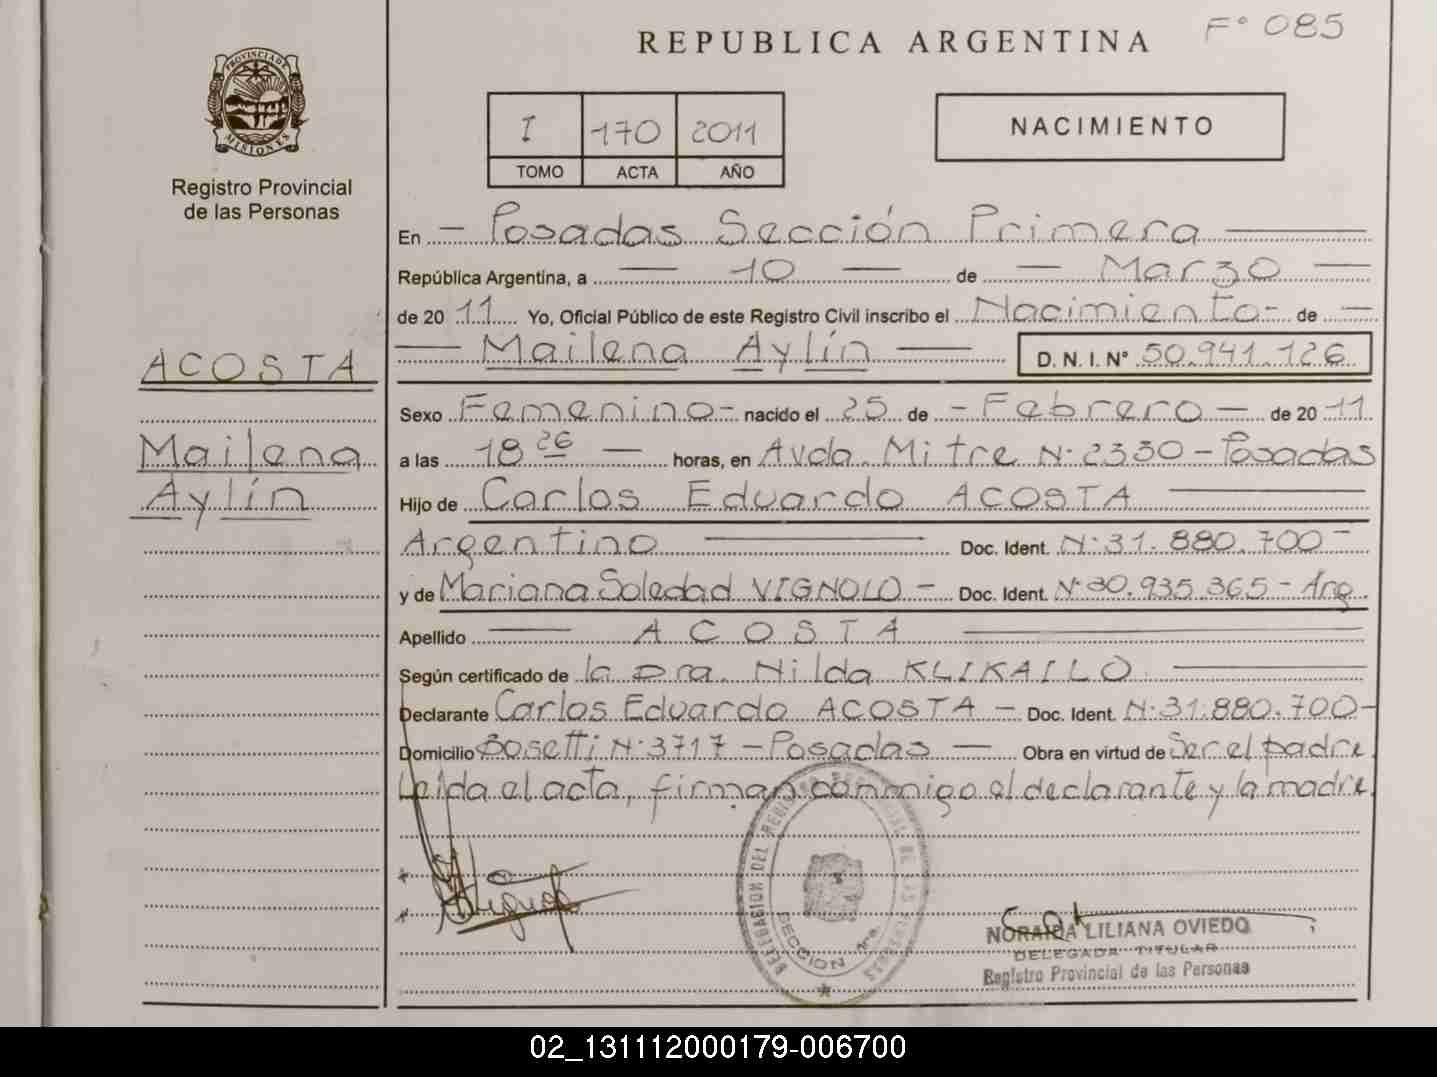 F° 085
REPUBLICA ARGENTINA
PROVINCIA DE MISIONES
Registro Provincial
de las Personas
I 170 2011
TOMO ACTA AÑO
NACIMIENTO
En - Posadas Sección Primera
República Argentina, a 10 de Marzo
de 2011 Yo, Oficial Público de este Registro Civil inscribo el Nacimiento- de
Mailena Aylín D. N. I. N° 50.941.126
ACOSTA
Mailena
Aylín
Sexo Femenino- nacido el 25 de - Febrero - de 2011
a las 18 26 - horas, en Avda. Mitre N° 2330 - Posadas
Hijo de Carlos Eduardo ACOSTA
Argentino Doc. Ident. N° 31.880.700-
y de Mariana Soledad VIGNOLO - Doc. Ident. N° 30.935.365 - Arg.
Apellido ACOSTA
Según certificado de la Dra. Nilda KLIKAILO
Declarante Carlos Eduardo ACOSTA - Doc. Ident. N° 31.880.700-
Domicilio Bosetti N° 3717 - Posadas - Obra en virtud de Ser el padre.
Leída el acta, firman conmigo el declarante y la madre.
DELEGACION DEL REGISTRO PROVINCIAL DE LAS PERSONAS
SECCION 1ra.
NORAIDA LILIANA OVIEDO
DELEGADA TITULAR
Registro Provincial de las Personas
02_131112000179-006700